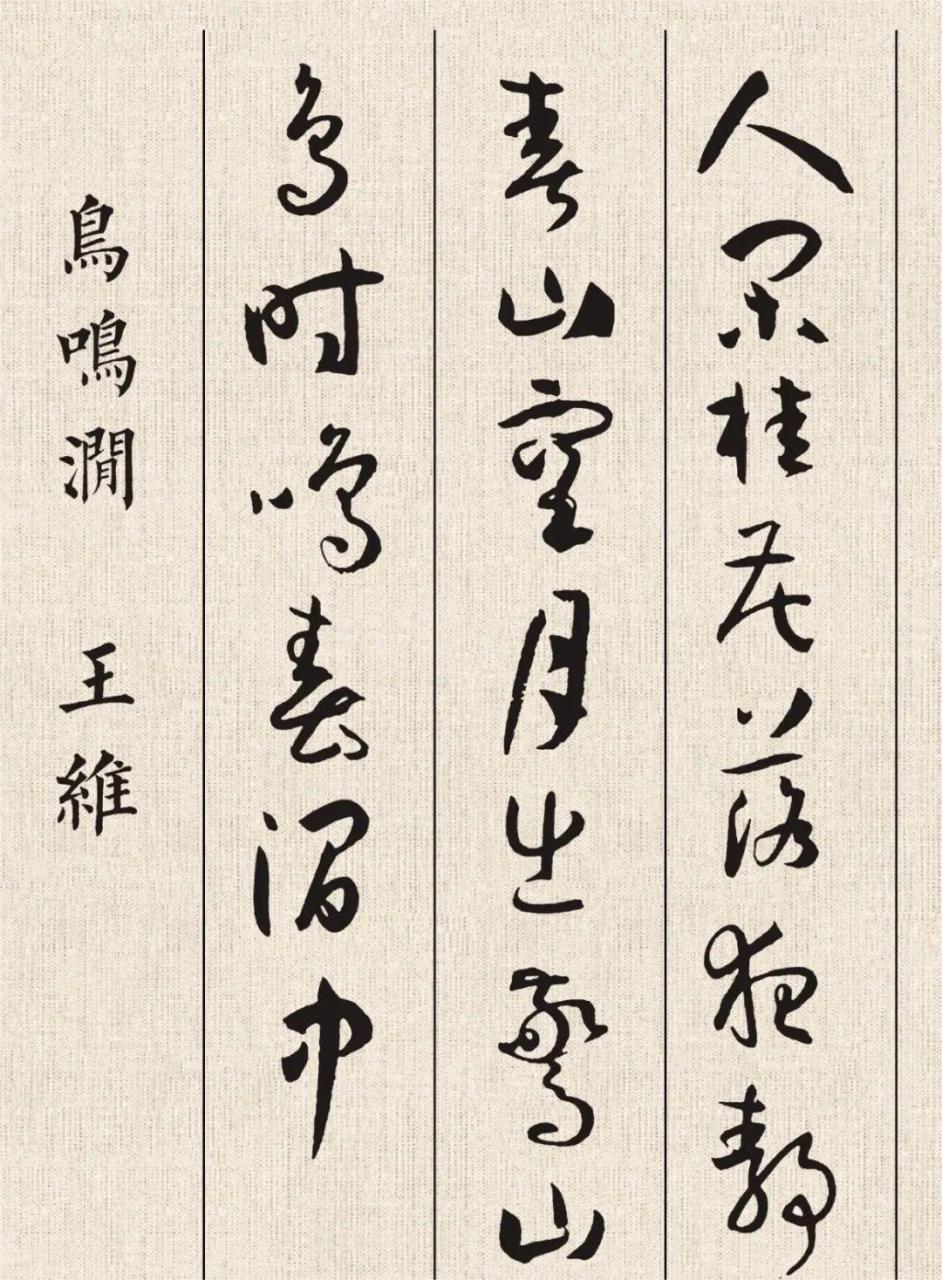 人閑桂花落夜靜
春山空月出驚山
鳥時鳴春澗中
鳥鳴澗 王維